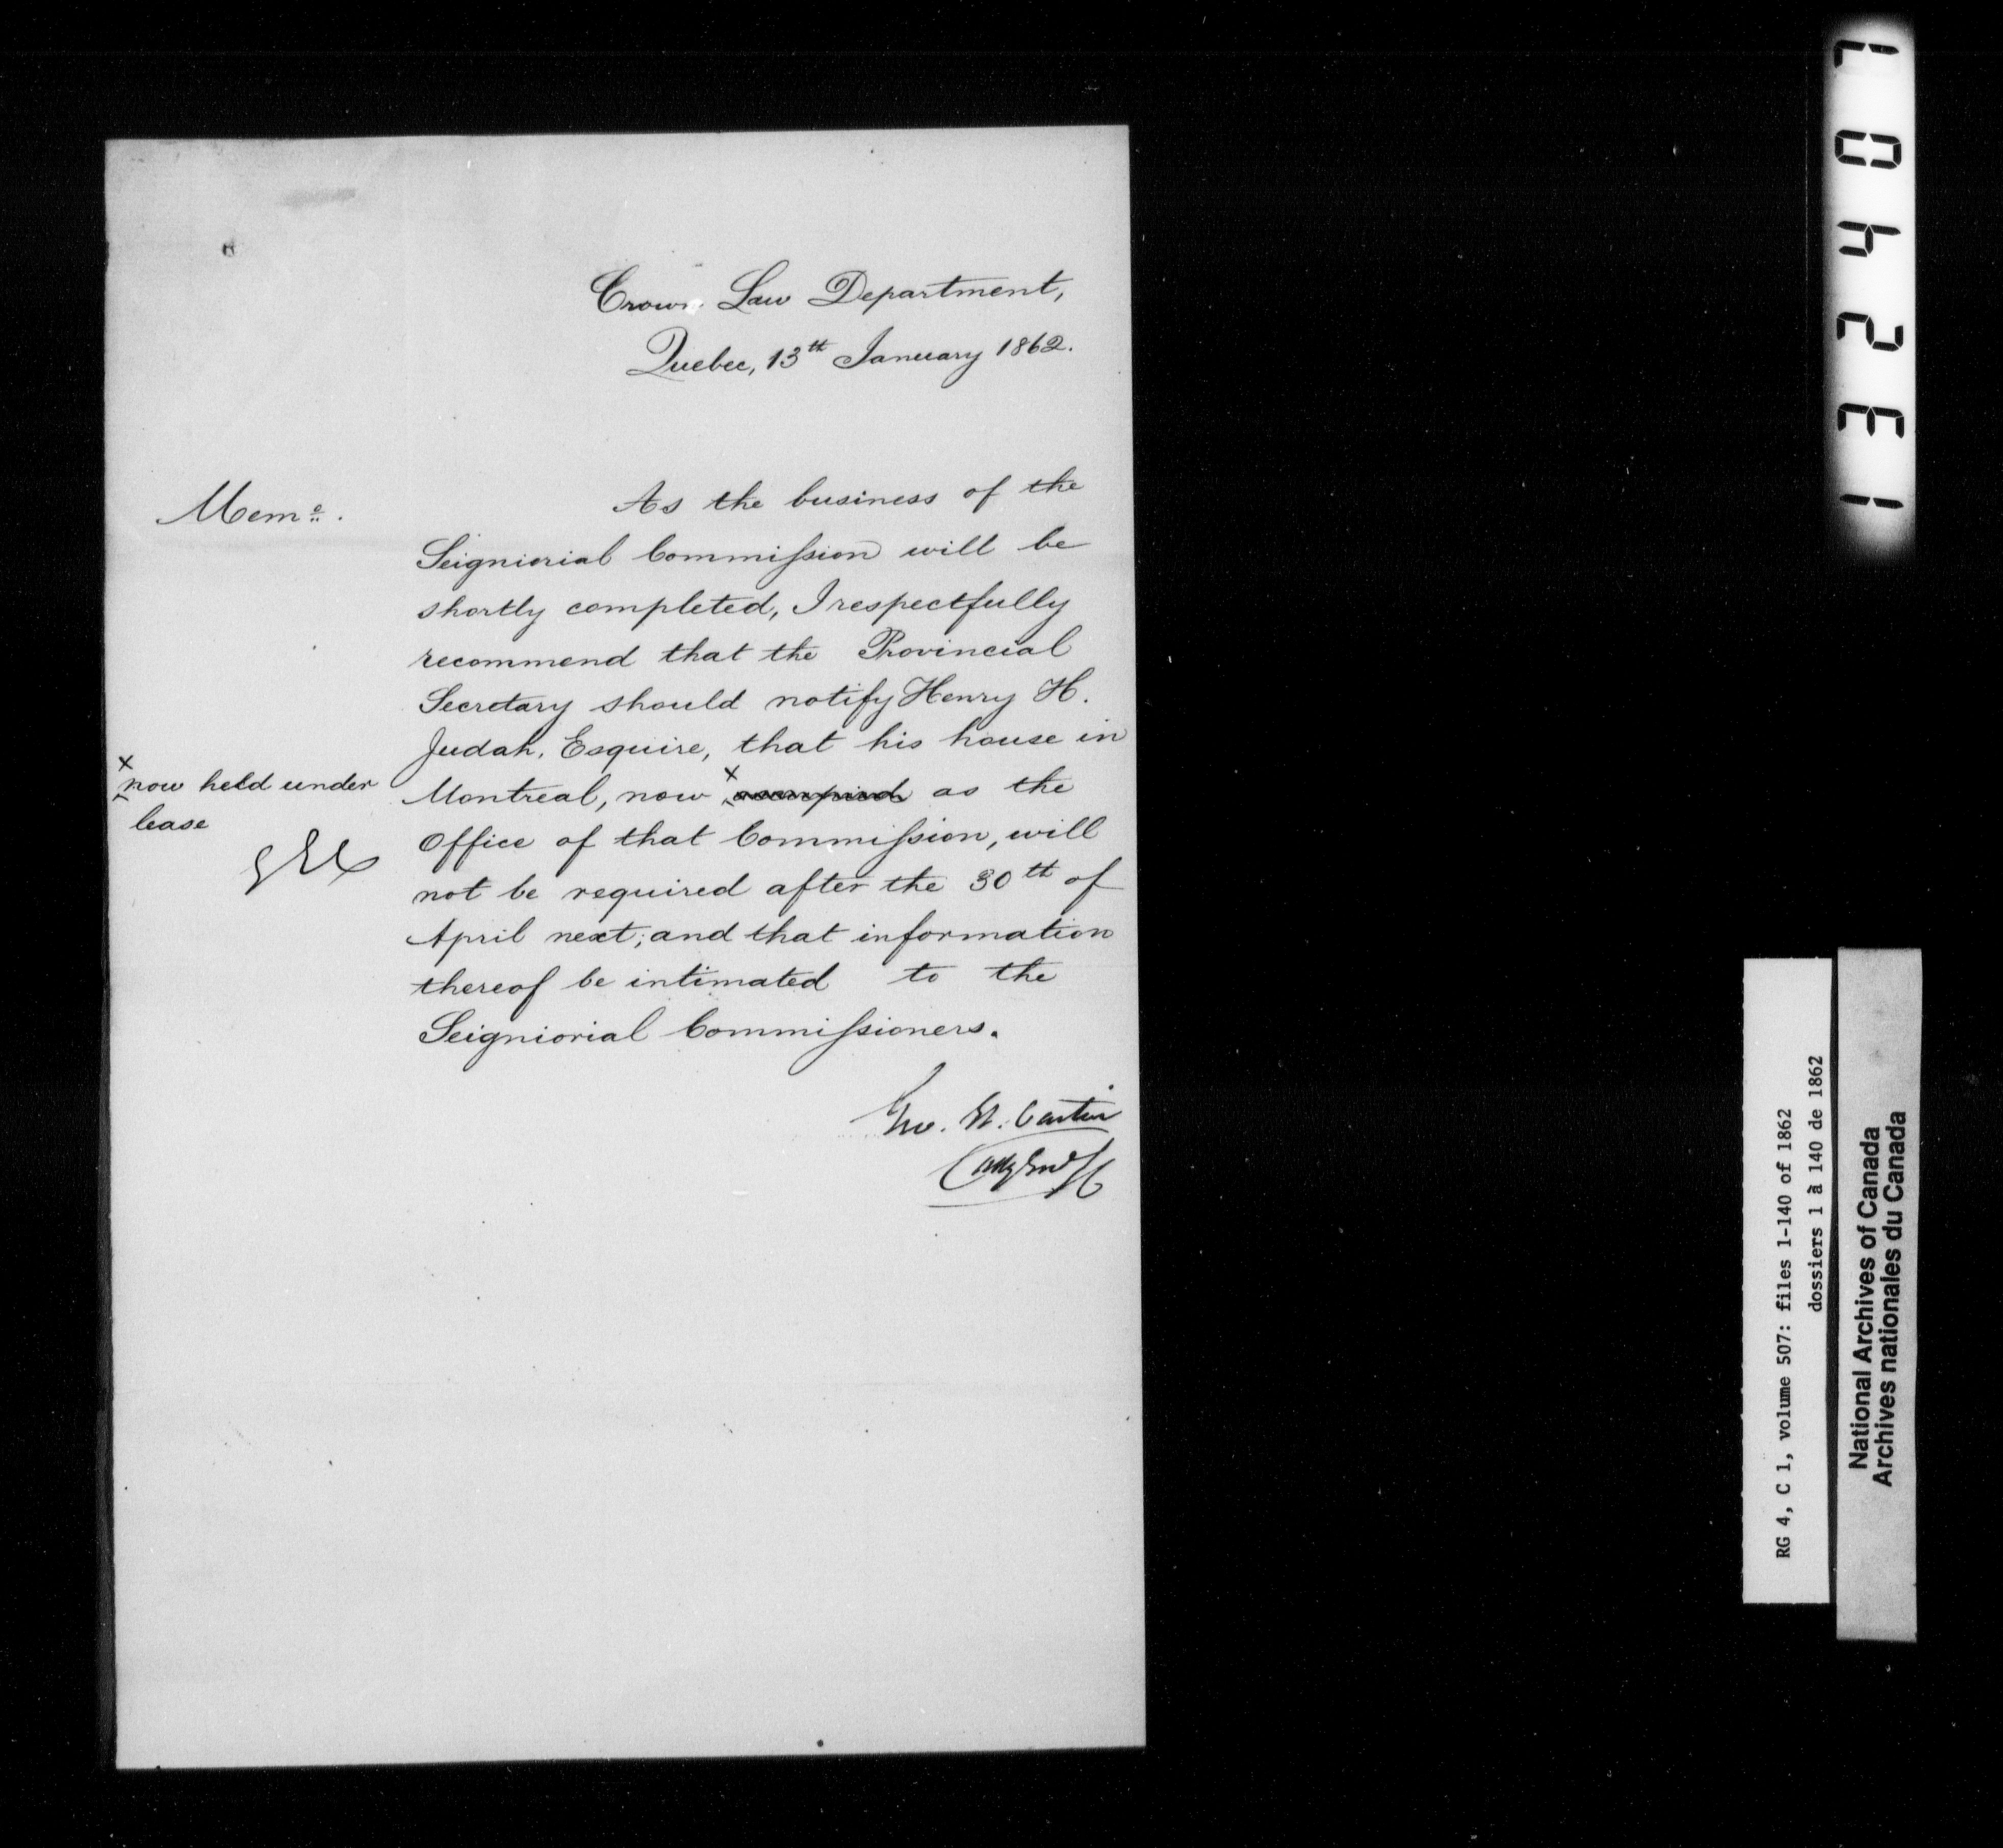 Crown Law Department,
Quebec, 13th January 1862.
Memo.
As the business of the
Seigniorial Commission will be
shortly completed, I respectfully
recommend that the Provincial
Secretary should notify Henry H.
Judah, Esquire, that his house in
Montreal, now x occupied as the
x now held under
lease
GEC
Office of that Commission, will
not be required after the 30th of
April next; and that information
thereof be intimated to the
Seigniorial Commissioners.
Geo. Et. Cartier
Atty Genl LC
132407
RG 4, C 1, volume 507: files 1-140 of 1862
dossiers 1 à 140 de 1862
National Archives of Canada
Archives nationales du Canada